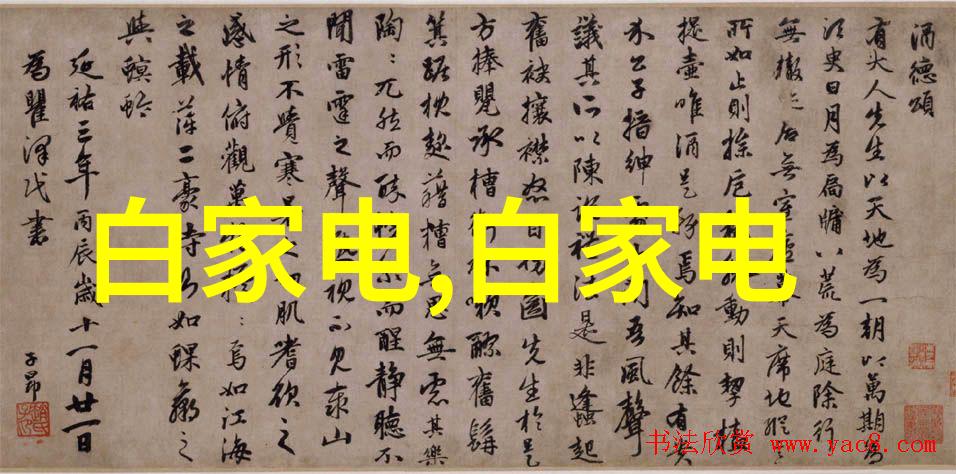 酒德頌
有大人先生以天地為一朝以萬期為
須臾日月為扃牖八荒為庭除行
無轍迹居無室廬 天席地縱
所如止則操卮 動則挈榼
提壺唯酒是務焉知其餘有貴
介公子搢紳 吾風聲
議其所以陳說禮法是非鋒起
奮袂攘襟怒目切 先生於是
方捧甖承槽銜杯漱醪奮髯
箕踞枕麴藉糟無思無慮其樂
陶:兀然而醉 爾而醒靜聽不
聞雷霆之聲 視不見泰山
之形不覺寒暑之切肌嗜欲之
感情俯觀萬物擾:焉如江海
之載萍二豪侍側如蜾蠃之
與螟蛉
延祐三年丙辰歲十一月廿一日
為瞿澤民書
子昂
白家电,白家电
书法欣赏 www.yac8.com